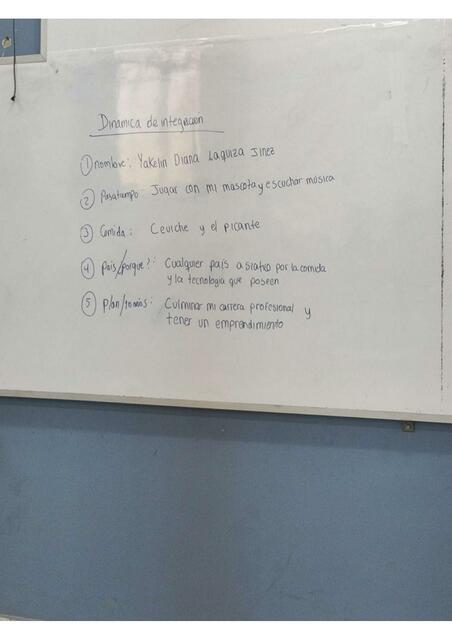 Dinamica de integración
① nombre: Yakelin Diana Laquiza Jinez
② Pasatiempo: Jugar con mi mascota y escuchar música
③ Comida: Ceviche y el picante
④ país/porque?: Cualquier país asiatico por la comida
y la tecnología que poseen
⑤ plan/10 años: Culminar mi carrera profesional y
tener un emprendimiento